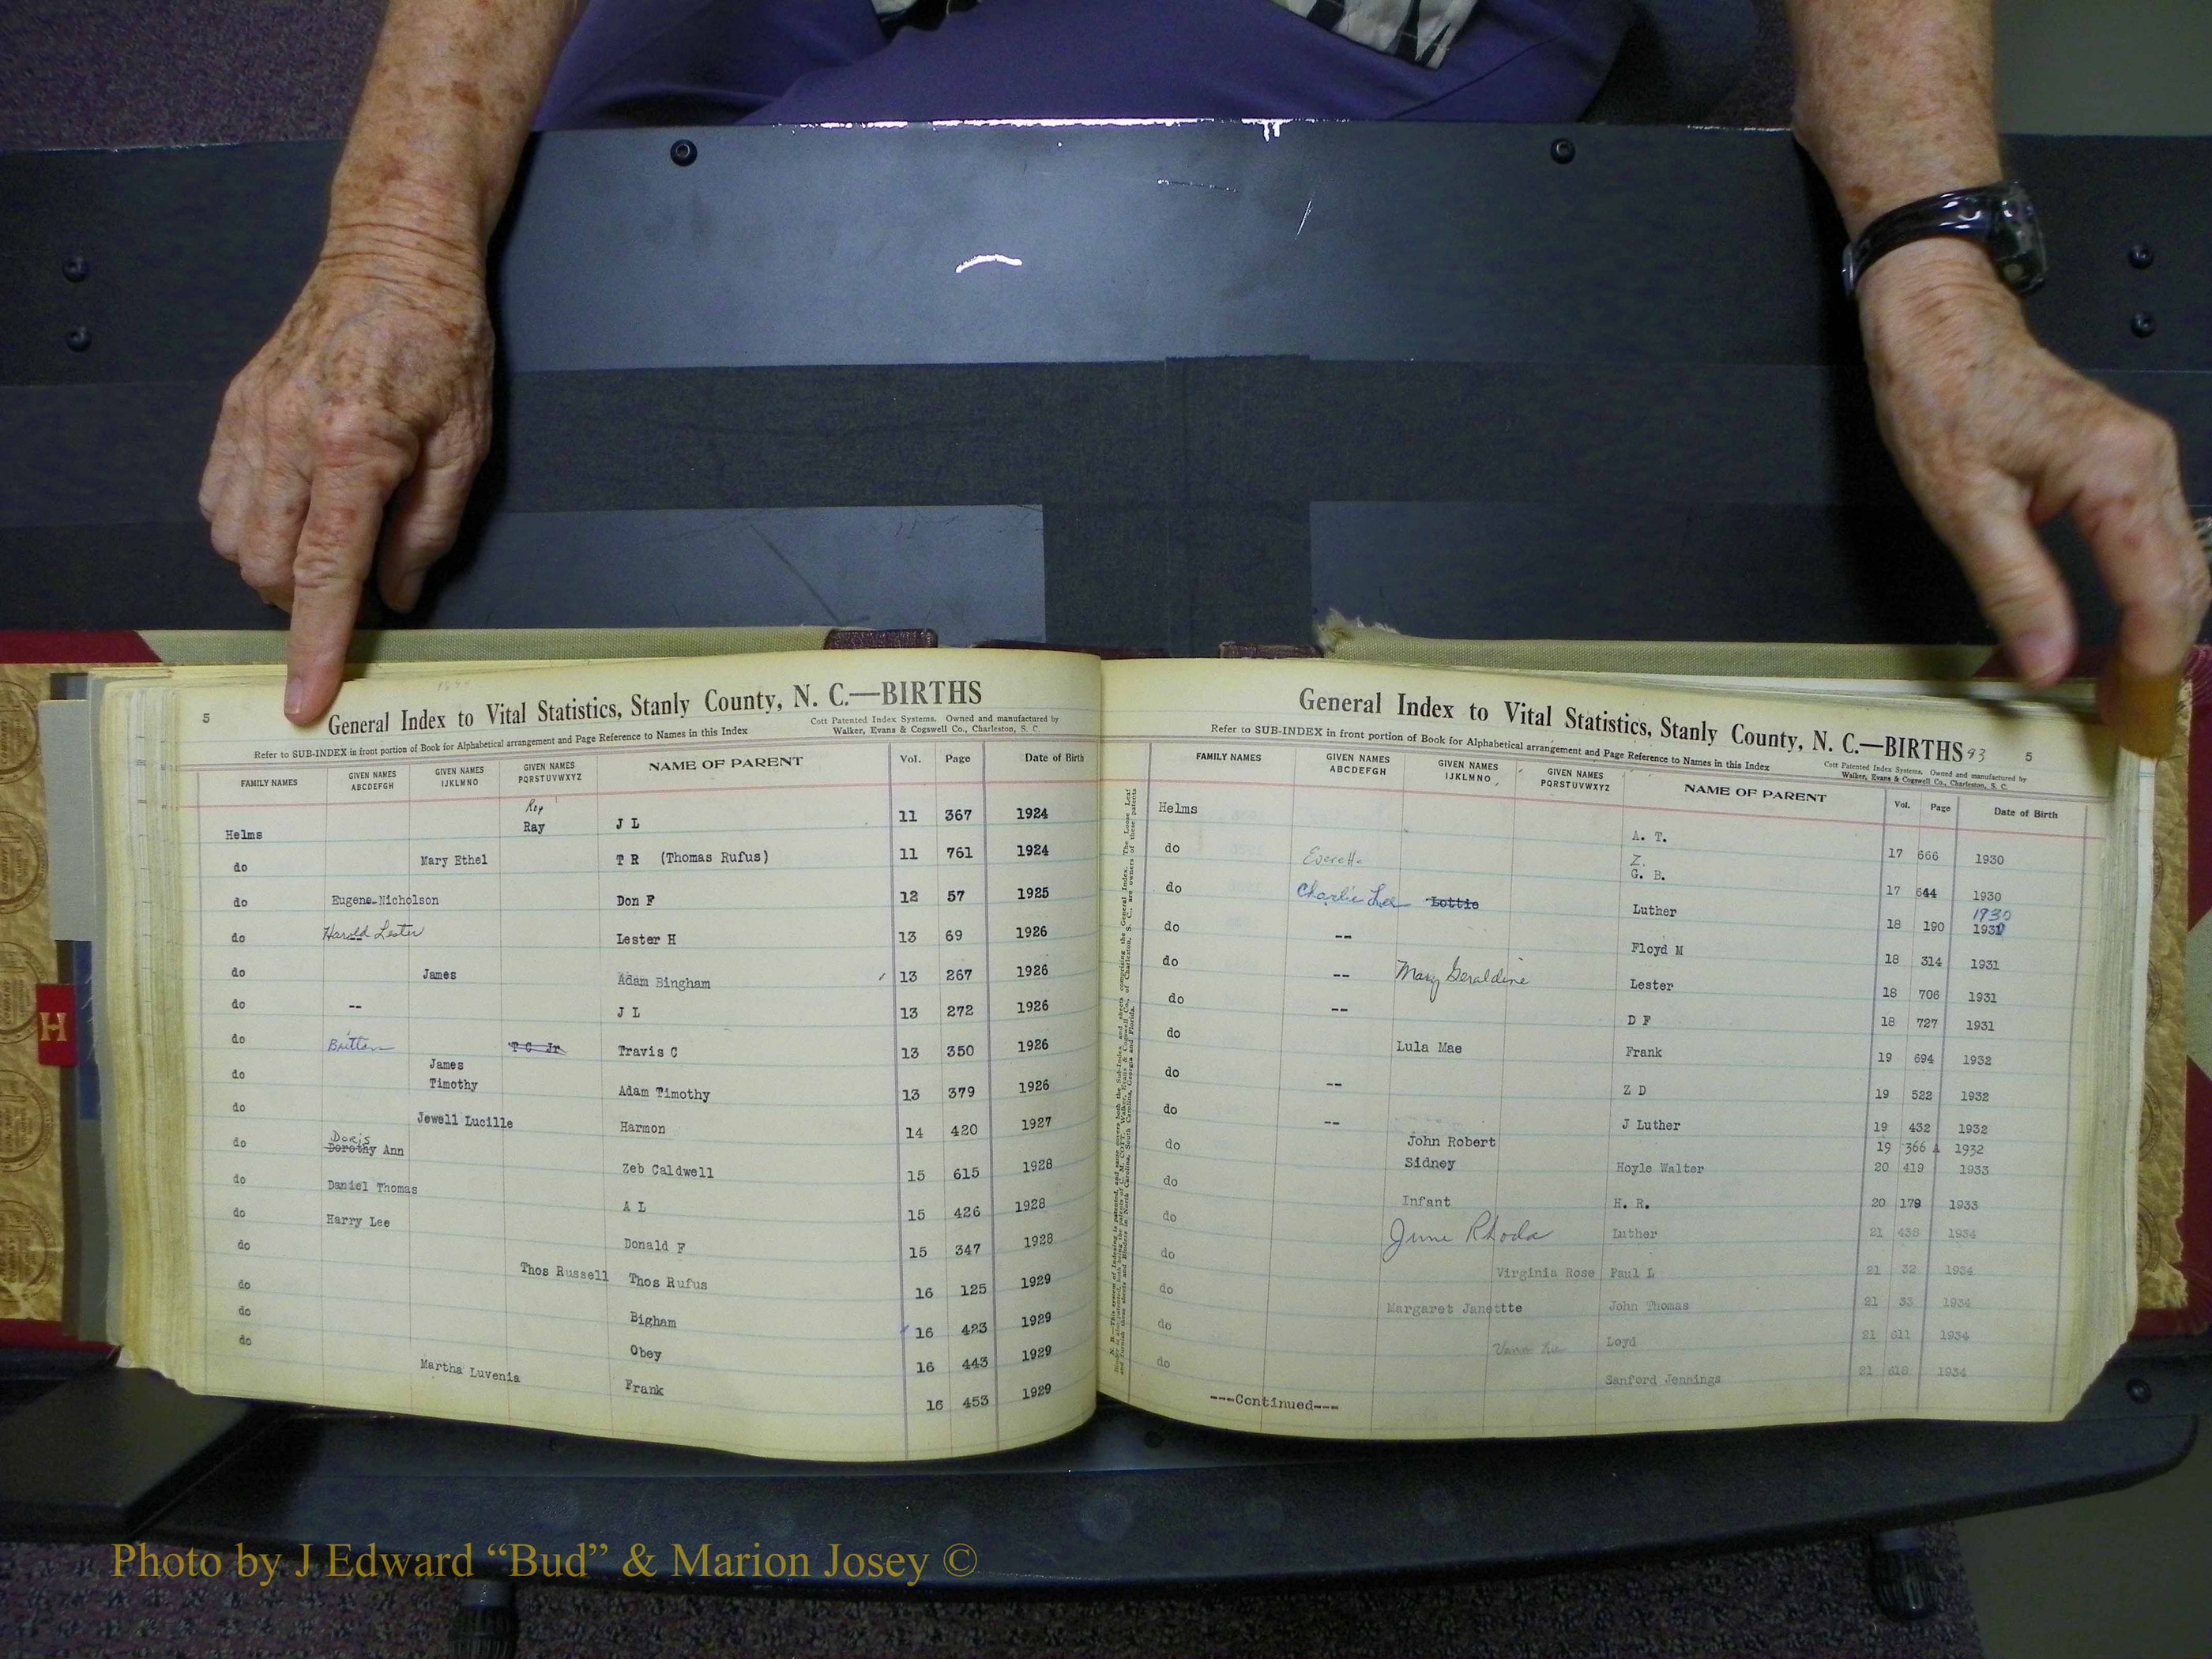 5
General Index to Vital Statistics, Stanly County, N. C.—BIRTHS
Refer to SUB-INDEX in front portion of Book for Alphabetical arrangement and Page Reference to Names in this Index
Cott Patented Index Systems. Owned and manufactured by
Walker, Evans & Cogswell Co., Charleston, S. C.
FAMILY NAMES GIVEN NAMES ABCDEFGH GIVEN NAMES IJKLMNO GIVEN NAMES PQRSTUVWXYZ NAME OF PARENT Vol. Page Date of Birth
Roy
Helms Ray J L 11 367 1924
do Mary Ethel T R (Thomas Rufus) 11 761 1924
do Eugene Nicholson Don F 12 57 1925
do Harold Lester Lester H 13 69 1926
do James Adam Bingham 13 267 1926
do -- J L 13 272 1926
do Britten T C Jr Travis C 13 350 1926
do James Timothy Adam Timothy 13 379 1926
do Jewell Lucille Harmon 14 420 1927
Doris
do Dorothy Ann Zeb Caldwell 15 615 1928
do Daniel Thomas A L 15 426 1928
do Harry Lee Donald F 15 347 1928
do Thos Russell Thos Rufus 16 125 1929
do Bigham 16 423 1929
do Obey 16 443 1929
do Martha Luvenia Frank 16 453 1929
General Index to Vital Statistics, Stanly County, N. C.—BIRTHS 93 5
Refer to SUB-INDEX in front portion of Book for Alphabetical arrangement and Page Reference to Names in this Index
Cott Patented Index Systems. Owned and manufactured by
Walker, Evans & Cogswell Co., Charleston, S. C.
FAMILY NAMES GIVEN NAMES ABCDEFGH GIVEN NAMES IJKLMNO GIVEN NAMES PQRSTUVWXYZ NAME OF PARENT Vol. Page Date of Birth
Helms A. T. 17 666 1930
Z.
do Everette G. B. 17 644 1930
1930
do Charlie Lee Lottie Luther 18 190 1931
do -- Floyd M 18 314 1931
do -- Mary Geraldine Lester 18 706 1931
do -- D F 18 727 1931
do Lula Mae Frank 19 694 1932
do -- Z D 19 522 1932
do -- J Luther 19 432 1932
John Robert 19 366 A 1932
do Sidney Hoyle Walter 20 419 1933
do Infant H. R. 20 179 1933
do June Rhoda Luther 21 438 1934
do Virginia Rose Paul L 21 32 1934
do Margaret Janettte John Thomas 21 33 1934
do Loyd 21 611 1934
do Sanford Jennings 21 618 1934
---Continued---
H
Photo by J Edward “Bud” & Marion Josey ©